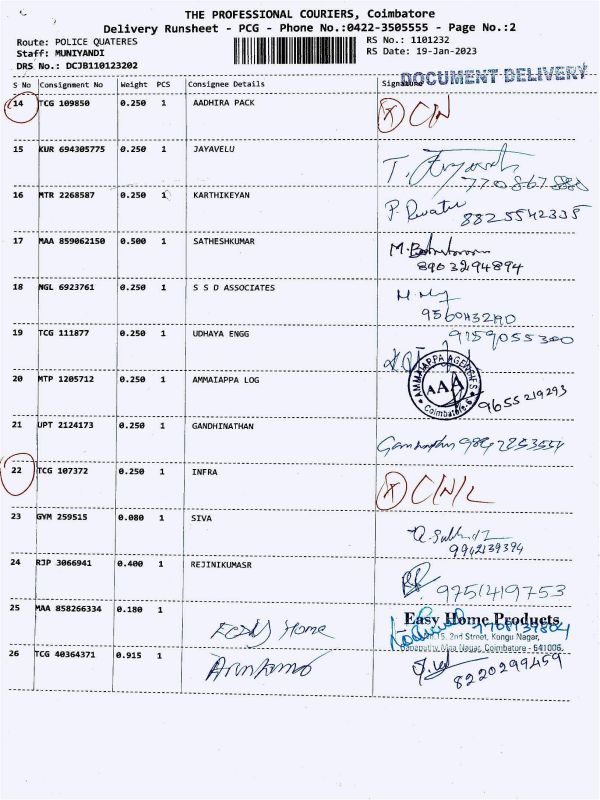 THE PROFESSIONAL COURIERS, Coimbatore
Delivery Runsheet - PCG - Phone No.:0422-3505555 - Page No.:2
Route: POLICE QUATERES RS No.: 1101232
Staff: MUNIYANDI RS Date: 19-Jan-2023
DRS No.: DCJB110123202
DOCUMENT DELIVERY
S No Consignment No Weight PCS Consignee Details Signature
14 TCG 109850 0.250 1 AADHIRA PACK
15 KUR 694305775 0.250 1 JAYAVELU
770867880
16 MTR 2268587 0.250 1 KARTHIKEYAN
8825542335
17 MAA 859062150 0.500 1 SATHESHKUMAR
8903294894
18 NGL 6923761 0.250 1 S S D ASSOCIATES
19 TCG 111877 0.250 1 UDHAYA ENGG
9159055300
20 MTP 1205712 0.250 1 AMMAIAPPA LOG
AMMAIAPPA AGENCIES
AAA
Coimbatore-6
9655219293
21 UPT 2124173 0.250 1 GANDHINATHAN
22 TCG 107372 0.250 1 INFRA
C/N/L
23 GYM 259515 0.080 1 SIVA
9942139394
24 RJP 3066941 0.400 1 REJINIKUMASR
9751419753
25 MAA 858266334 0.180 1 Easy Home
Easy Home Products
15, 2nd Street, Kongu Nagar,
Nagar, Coimbatore - 641006.
26 TCG 40364371 0.915 1
8220299459